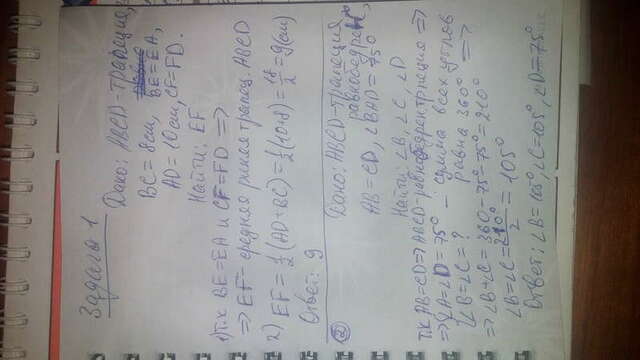 Задача 1
Дано: ABCD - трапеция,
BC = 8см, BE = EA,
AD = 10см, CF = FD.
Найти: EF
1) т.к BE = EA и CF = FD =>
=> EF - средняя линия трапец. ABCD
2) EF = 1/2 (AD + BC) = 1/2 (10+8) = 18/2 = 9(см)
Ответ: 9
② Дано: ABCD - трапеция
равнобедрен
AB = CD, ∠BAD = 75°
Найти: ∠B, ∠C, ∠D
т.к AB = CD => ABCD - равнобедрен трпеция =>
=> ∠A = ∠D = 75° - сумма всех углов
∠B = ∠C = ? равна 360° =>
=> ∠B + ∠C = 360 - 75° - 75° = 210°
∠B = ∠C = 210°/2 = 105°
Ответ: ∠B = 105°, ∠C = 105°, ∠D = 75°